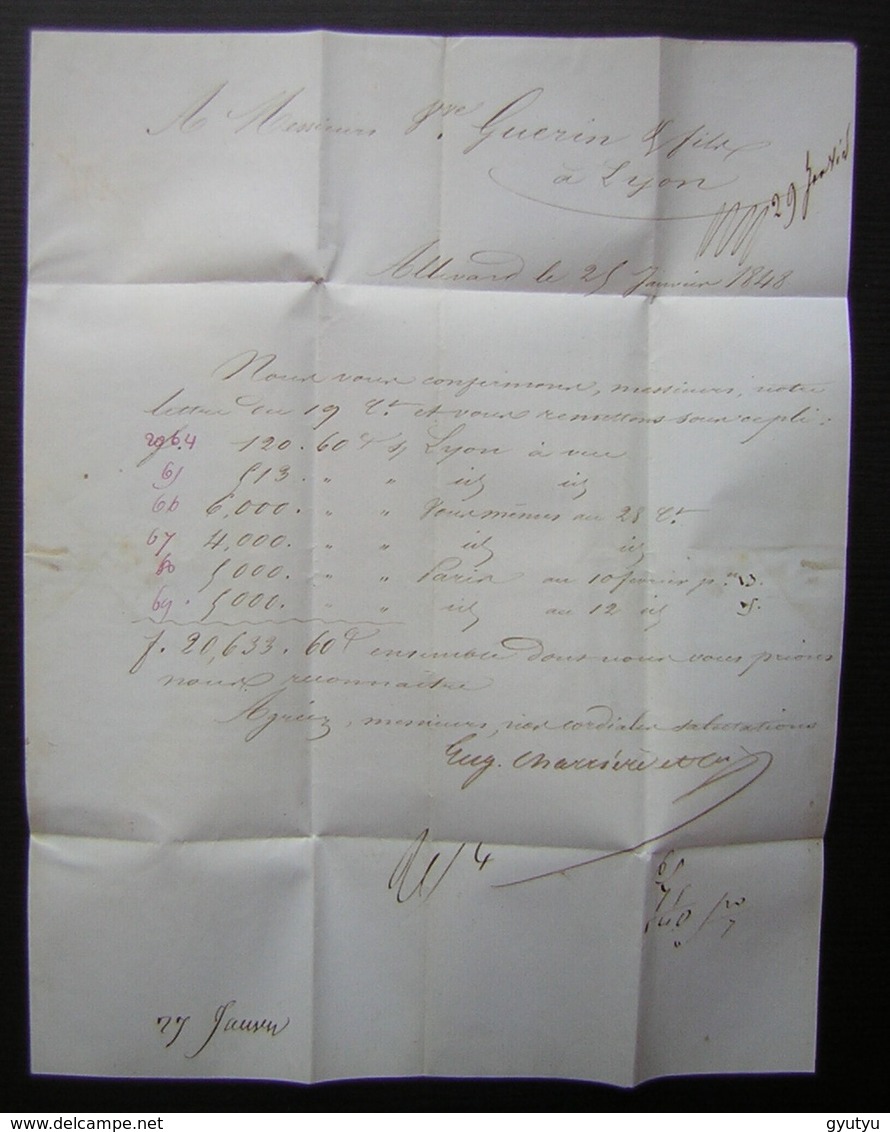 A Messieurs Vve Guerin & fils
à Lyon
29 Janvier
Allevard le 25 Janvier 1848
Nous vous confirmons, messieurs, notre
lettre du 19 Ct et vous remettons sous ce pli :
f. 120.60 c s/ Lyon à vue
65 513. " " id id
66 6,000. " " Vous mêmes au 28 Ct
67 4,000. " " id id
5,000. " " Paris au 10 février pn 13.
69 5000. " " id au 12 id 15.
f. 20,633.60 c ensemble dont nous vous prions
nous reconnaître
Agréez, messieurs, nos cordiales salutations
Eug. Charrière et Cie
4
27 Janvier
delcampe.net
gyutyu